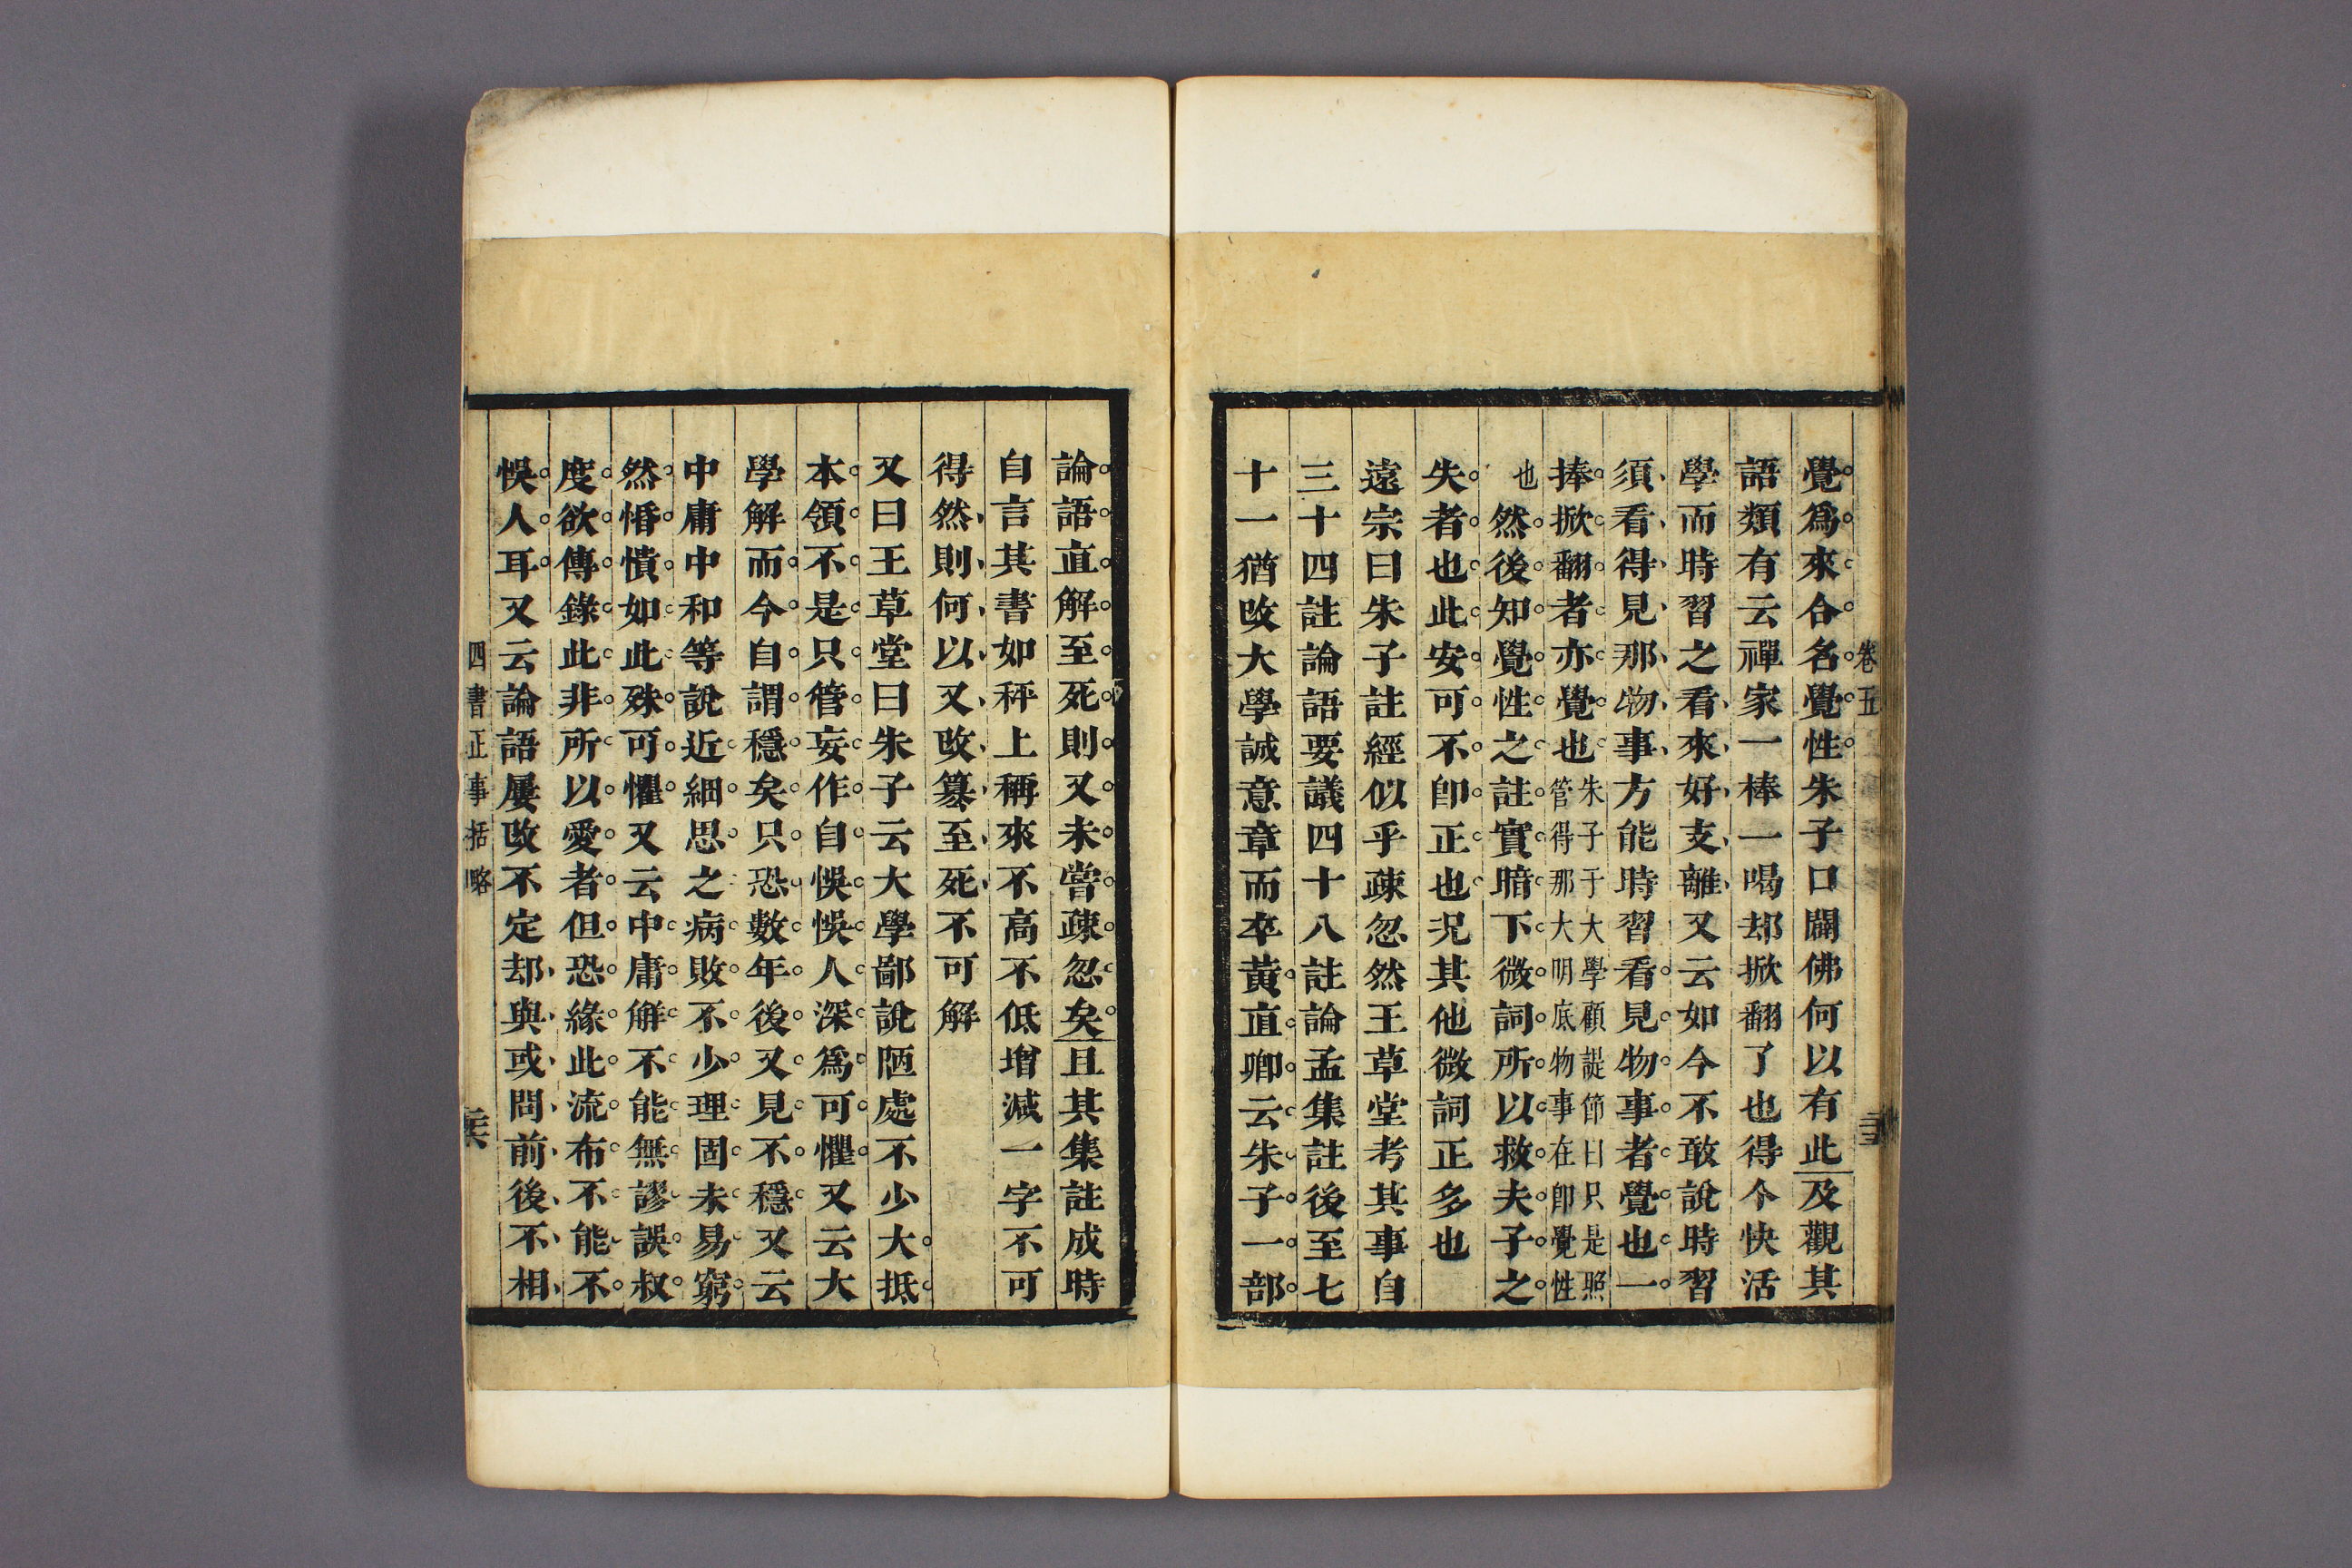 卷五
覺爲來合名覺性朱子口闢佛何以有此及觀其
語類有云禪家一棒一喝却掀翻了也得个快活
學而時習之看來好支離又云如今不敢說時習
須看得見那物事方能時習看見物事者覺也一
捧掀翻者亦覺也朱子于大學顧諟節曰只是照管得那大明底物事在卽覺性
也然後知覺性之註實暗下微詞所以救夫子之
失者也此安可不卽正也况其他微詞正多也
遠宗曰朱子註經似乎疎忽然王草堂考其事自
三十四註論語要議四十八註論孟集註後至七
十一猶攺大學誠意章而卒黃直卿云朱子一部
論語直解至死則又未嘗疎忽矣且其集註成時
自言其書如秤上稱來不高不低增減一字不可
得然則何以又攺纂至死不可解
又曰王草堂曰朱子云大學鄙說陋處不少大抵
本領不是只管妄作自悞悞人深爲可懼又云大
學解而今自謂穩矣只恐數年後又見不穩又云
中庸中和等說近細思之病敗不少理固未易窮
然惛憒如此殊可懼又云中庸解不能無謬誤叔
度欲傳錄此非所以愛者但恐緣此流布不能不
悞人耳又云論語屢攺不定却與或問前後不相
四書正事括略